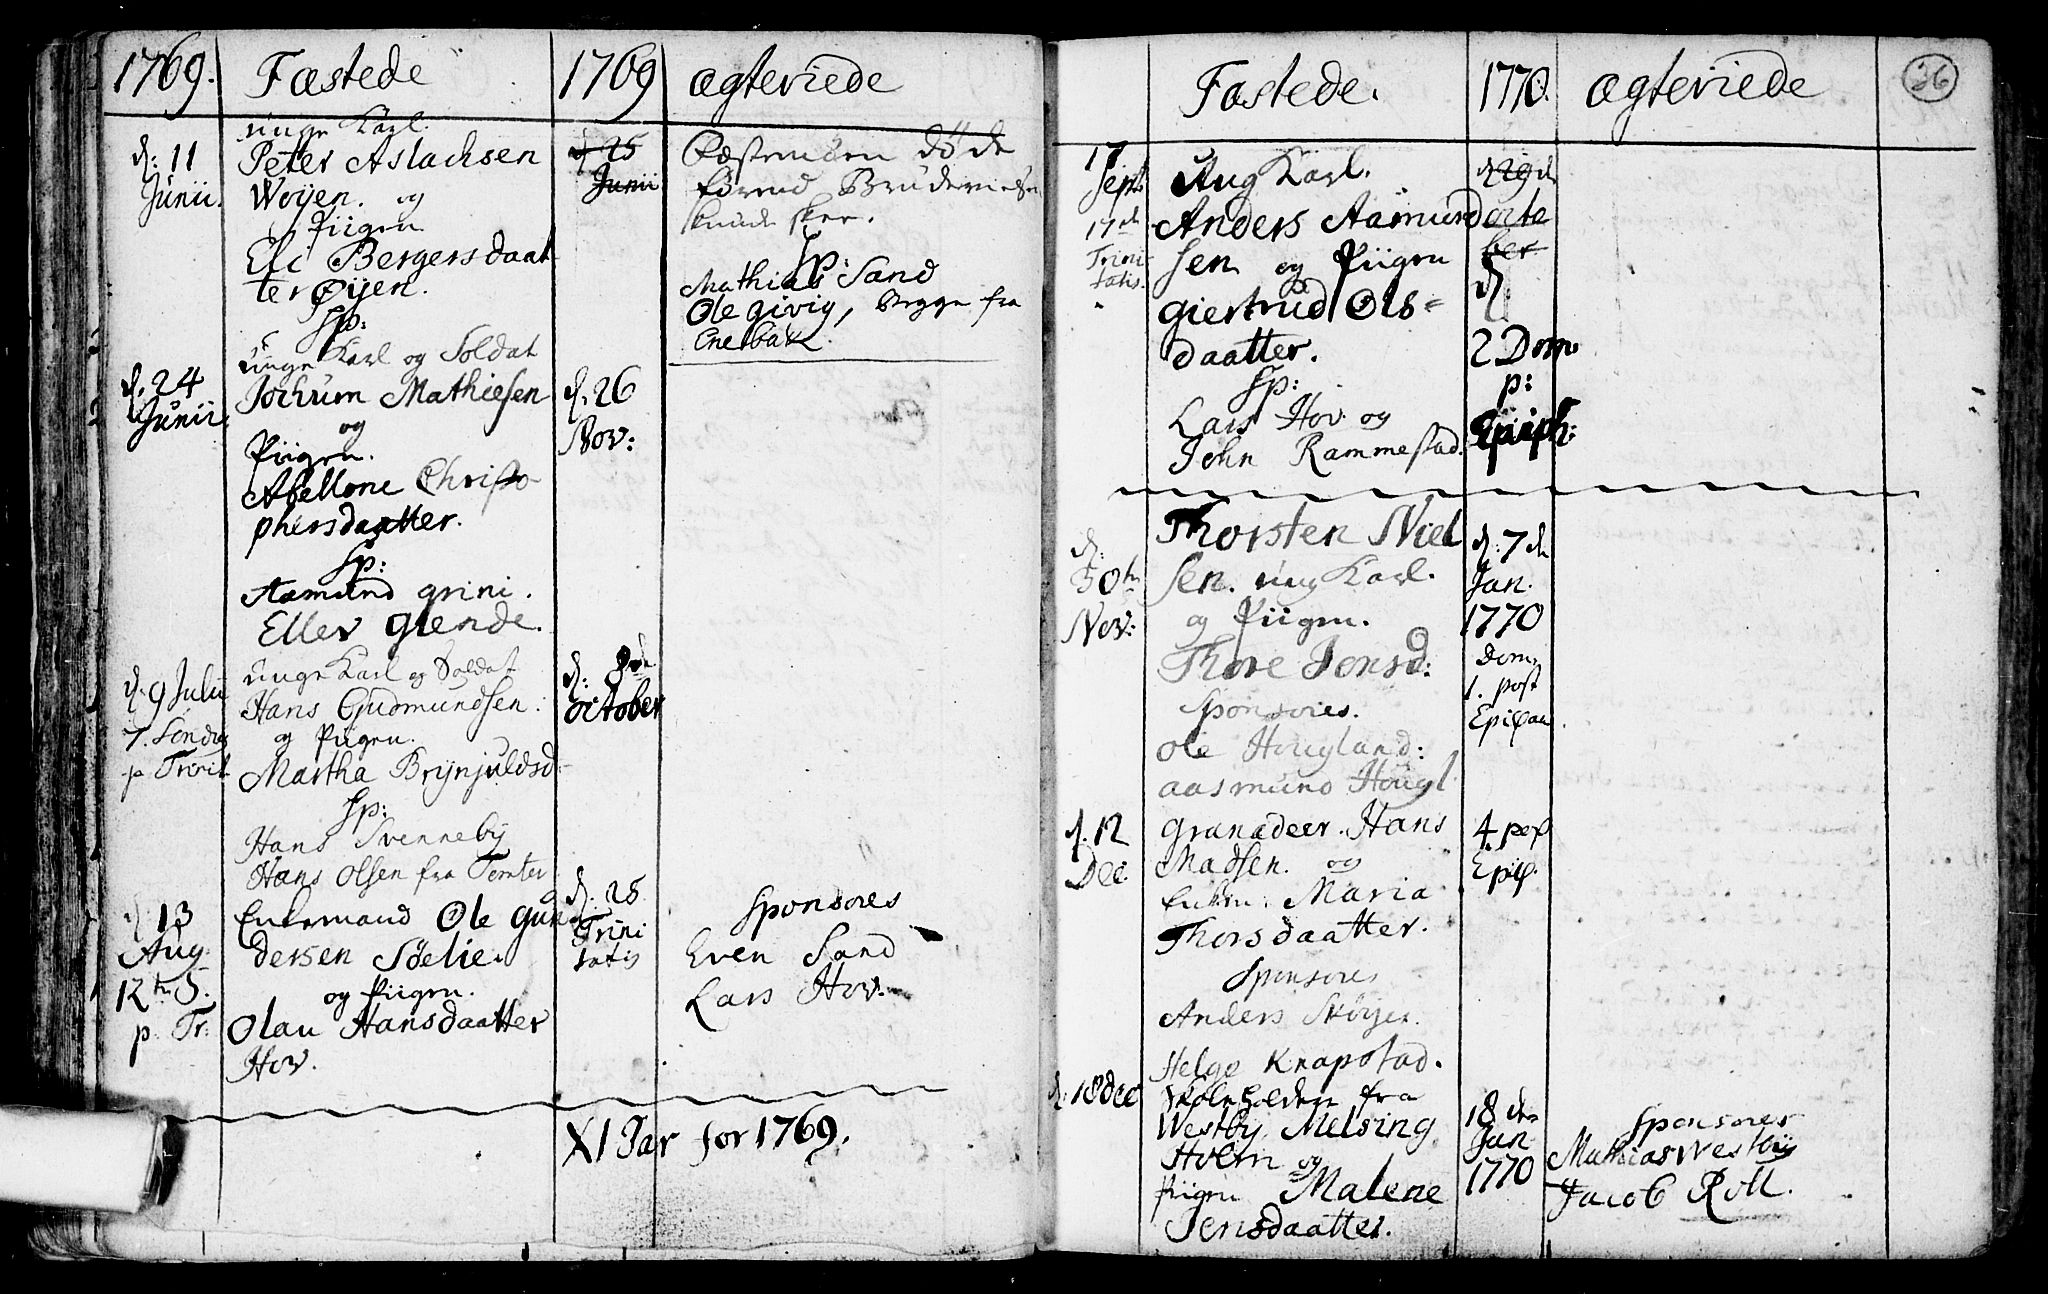 1769.
Fæstede
1769
ægteviede
d: 11
Junii.
unge Karl.
Peter Aslachsen
Woyen. og
Piigen
Eli Bergersdaat
ter Øijen.
Sp:
d 25
Junii
Fæstemøen døde
førend Brudevielsen
kunde skee.
Sp:
Mathias Sand
Ole Givig, begge fra
Enebak.
d. 24
Junii
unge Karl og Soldat
Jochum Mathiesen
og
Piigen.
Abellone Christo
phersdaatter.
Sp:
Aamund Grini.
Eller Glende.
d. 26
Nov:
d. 9 Julii
7. Søndag
p Trinit
unge Karl og Soldat
Hans Gudmundsen:
og Piigen.
Martha Brynjuldsd
Sp:
Hans Svenneby
Hans Olsen fra Tomter
d: 8de
October
d 13
Aug.
12te S.
p. Tr:
Enkemand Ole Gun
dersen Sælie.
og Piigen.
Olau Hansdaatter
Hov.
d. 25
Trini
tatis
Sponsores
Even Sand
Lars Hov.
XI Par for 1769.
Fæstede.
1770.
ægteviede
26
17
Sept
17de
Trini
tatis.
Ung Karl.
Anders Aamund
sen og Piigen
Giertrud Ols=
daatter.
Sp:
Lars Hov og
John Rammestad.
d 29de
octo
ber
d
2 Dom.
p:
Epiph:
d:
30te
Nov:
Thorsten Niel
sen. ung Karl.
og Piigen.
Thore Jensd:
Sponsores.
Ole Hougland:
Aasmund Hougl
d. 7de
Jan.
1770
Dom.
1. post
Epiphan.
d. 12
Dec.
Granadeer. Hans
Madsen. og
Enken. Maria
Thorsdaatter.
Sponsores
Anders Skøyen.
Helge Knapstad.
4. post
Epiph.
d. 18 Dec
Skoleholder fra
Westby. Melsing
Holm og
Piigen Malene
Jensdaatter.
18de
Jan
1770
Sponsores
Mathias Westby
Jacob Roll.